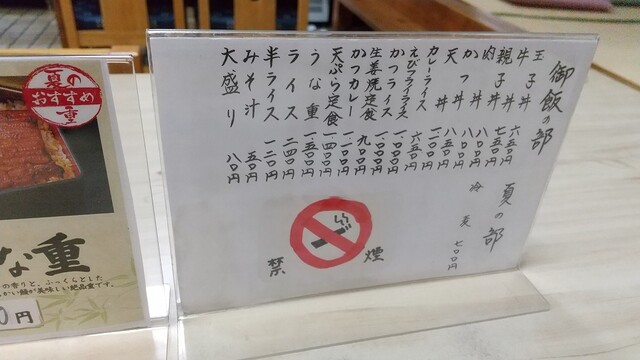 御飯の部
玉子丼 六五〇円
牛丼 七五〇円
親子丼 八〇〇円
肉丼 八〇〇円
かつ丼 八五〇円
天丼 一一〇〇円
カレーライス 六五〇円
えびフライライス 一〇〇〇円
かつライス 一〇〇〇円
生姜焼定食 九〇〇円
かつカレー 一一〇〇円
天ぷら定食 一四〇〇円
うな重 一五〇〇円
ライス 二四〇円
半ライス 一二〇円
みそ汁 五〇円
大盛り 八〇円
夏の部
冷麦 七〇〇円
禁煙
夏の
おすすめ
重
な重
の香りと、ふっくらとした
かい鰻が美味しい絶品重です。
0円